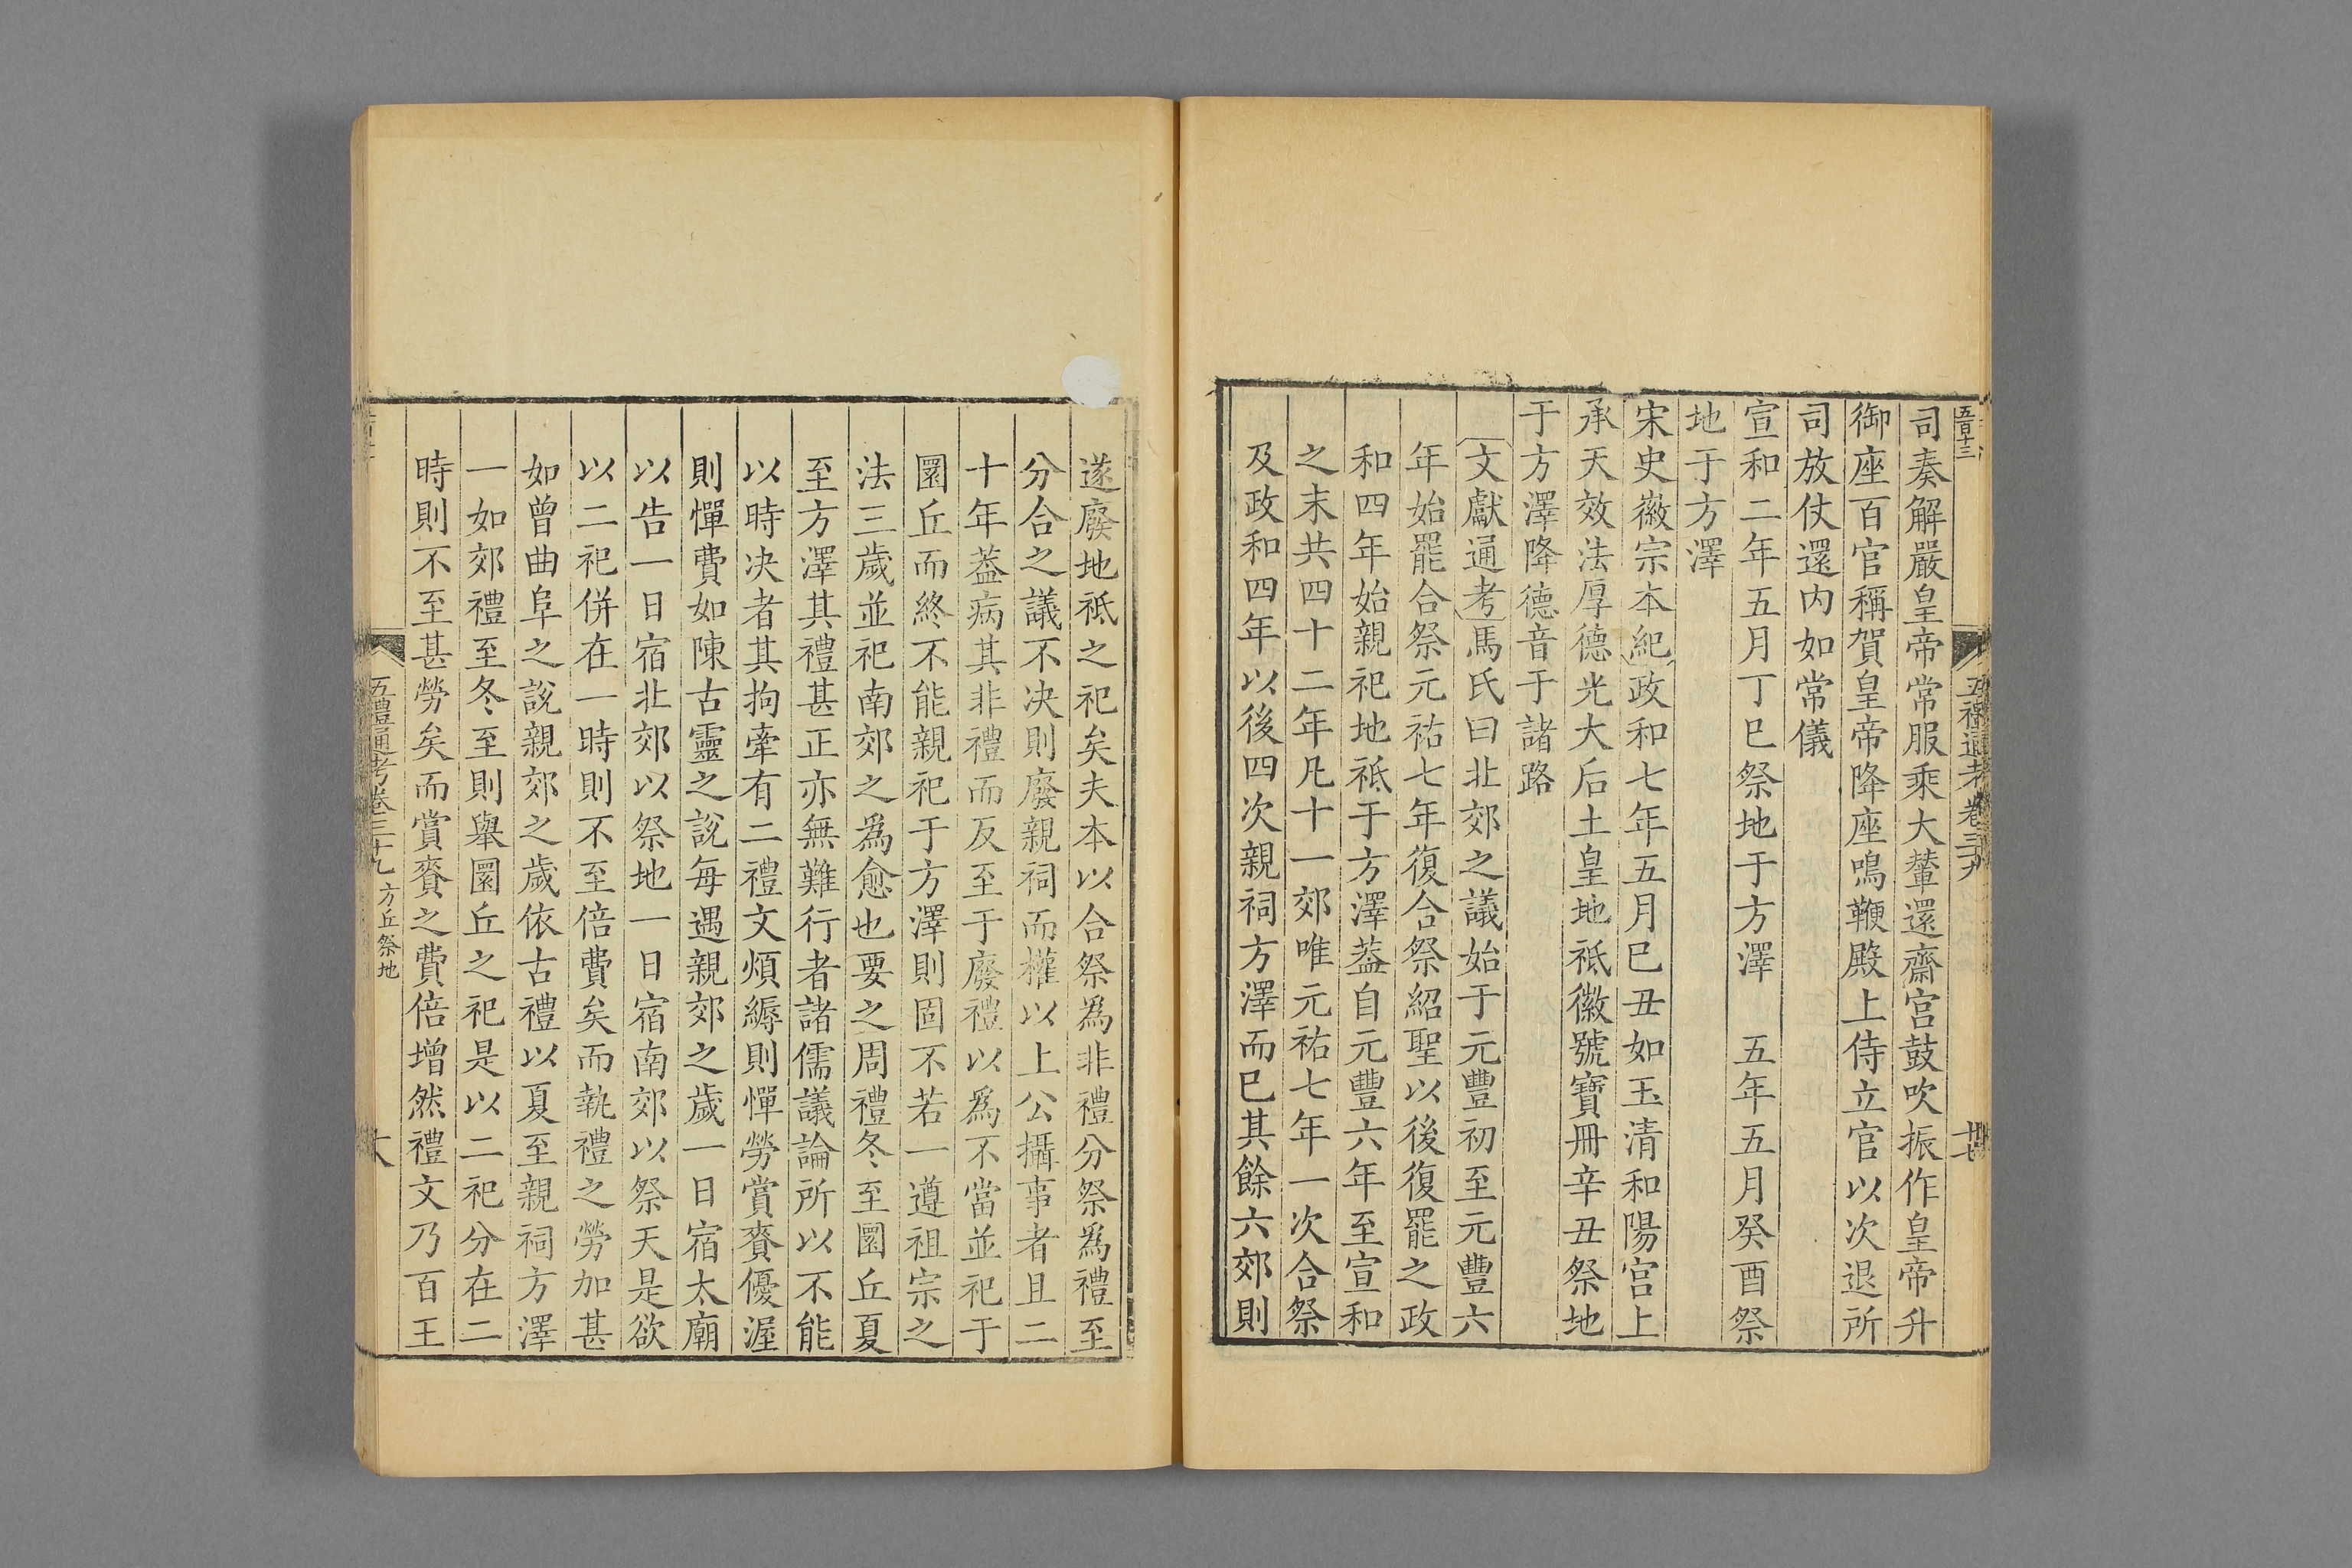 五禮通考卷三十九
司奏解嚴皇帝常服乘大輦還齋宮鼓吹振作皇帝升
御座百官稱賀皇帝降座鳴鞭殿上侍立官以次退所
司放仗還内如常儀
宣和二年五月丁巳祭地于方澤　五年五月癸酉祭
地于方澤
宋史徽宗本紀政和七年五月巳丑如玉清和陽宮上
承天效法厚德光大后土皇地祗徽號寶冊辛丑祭地
于方澤降德音于諸路
文獻通考馬氏曰北郊之議始于元豐初至元豐六
年始罷合祭元祐七年復合祭紹聖以後復罷之政
和四年始親祀地祗于方澤葢自元豐六年至宣和
之末共四十二年凡十一郊唯元祐七年一次合祭
及政和四年以後四次親祠方澤而巳其餘六郊則
遂廢地祗之祀矣夫本以合祭爲非禮分祭爲禮至
分合之議不决則廢親祠而權以上公攝事者且二
十年葢病其非禮而反至于廢禮以爲不當並祀于
圜丘而終不能親祀于方澤則固不若一遵祖宗之
法三歲並祀南郊之爲愈也要之周禮冬至圜丘夏
至方澤其禮甚正亦無難行者諸儒議論所以不能
以時决者其拘牽有二禮文煩縟則憚勞賞賚優渥
則憚費如陳古靈之說每遇親郊之歲一日宿太廟
以告一日宿北郊以祭地一日宿南郊以祭天是欲
以二祀併在一時則不至倍費矣而執禮之勞加甚
如曾曲阜之說親郊之歲依古禮以夏至親祠方澤
一如郊禮至冬至則舉圜丘之祀是以二祀分在二
時則不至甚勞矣而賞賚之費倍增然禮文乃百王
五禮通考卷三十九 方丘祭地